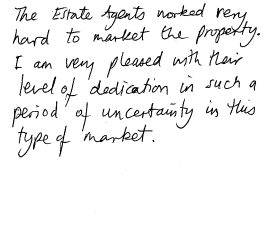 The Estate Agents worked very
hard to market the property.
I am very pleased with their
level of dedication in such a
period of uncertainty in this
type of market.